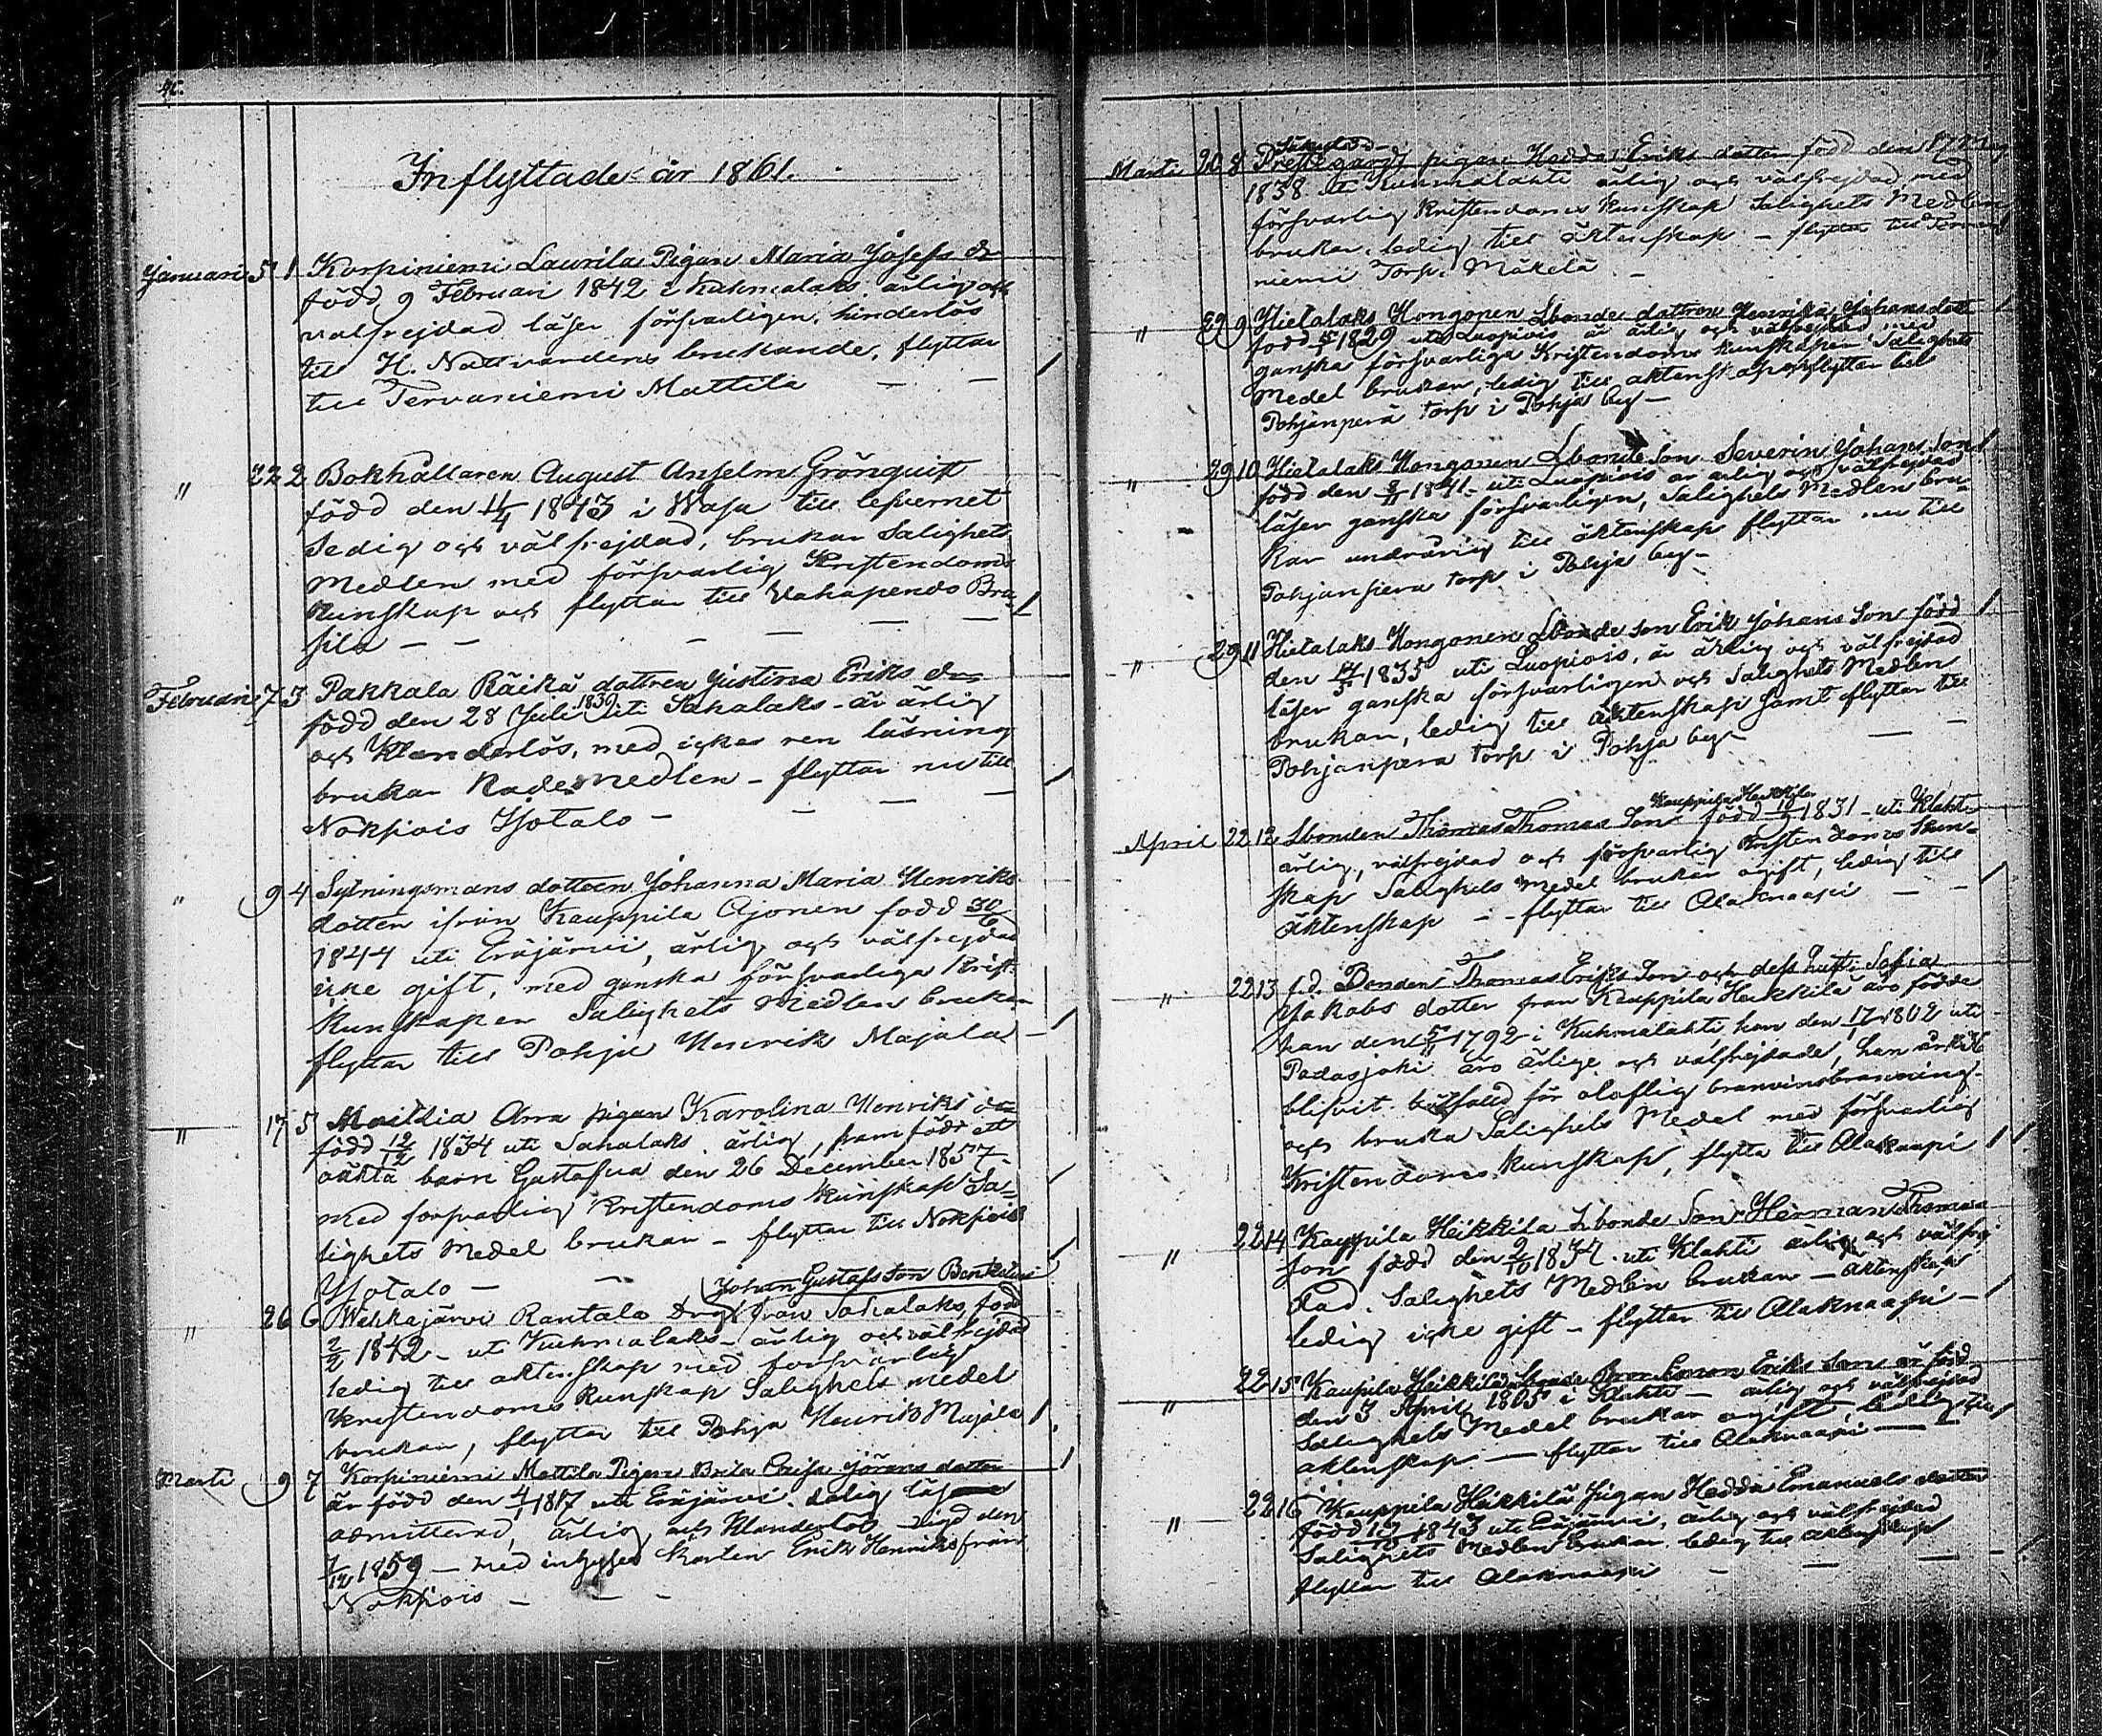 Inflyttade år 1861.
Januari 5 1 Korpiniemi Laurila Pigan Maria Josefs dr
född 9 Februari 1842 i Kuhmalaks ärlig och
välfrejdad läser försvarligen, hinderlös
till H. Nattvardens brukande, flyttar
till Tervaniemi Mattila — —
" 22 2 Bokhållaren August Anselm Grönquist
född den 11/4 1843 i Wasa till lefvernet
Sedig och välfrejdad, brukar Salighets
Medlen med försvarlig Kristendoms
Kunskap och flyttar till Wahapends Bru
— — — — — —
Februari 7 3 Pakkala Räikä dottren Justina Eriks dr
född den 28 Juli 1839 uti Sahalaks - är ärlig
och Klanderlös, med icke ren läsning
brukar Nademedlen - flyttar nu till
Nokpois Isotalo — — — —
" 9 4 Sytningsmans dottren Johanna Maria Henriks
dotter ifrån Kauppila Ajonen född 30/6
1844 uti Eräjärvi, ärlig och välfrejdad
icke gift, med ganska försvarliga Krist.
Kunskaper Salighets Medlen brukar
flyttar till Pohja Henrik Majala
" 17 5 Mattila Arra pigan Karolina Henriks dr
född 12/12 1834 uti Sahalaks ärlig, framfödt ett
oäkta barn Gustafva den 26 December 1857
med försvarlig Kristendoms Kunskap Sa=
lighets Medel brukar - flyttar till Nokpois
Isotalo — —
Johan Gustafsson
" 26 6 Wehkajärvi Rantala Drg från Sahalaks, född
2/2 1842 - uti Kuhmalaks - ärlig och välfrejdad
ledig till äktenskap med försvarlig
Kristendoms Kunskap Salighets medel
brukar, flyttar till Pohja Henrik Majala
Marti 9 7 Korpiniemi Mattila Pigan Brita Caisa Jörans dotter
är född den 4/1 1817 uti Eräjärvi. dålig läs
admitterad, ärlig och Klanderlös vigd den
7/12 1859 — med inhyses karlen Erik Henriks från
Nokpois — — —
Marti 20 8 Prestegårds pigan Hedda Eriks dotter född den 17
1838 uti Kuhmalahti ärlig och välfrejdad med
försvarlig Kristendoms Kunskap Salighets Medlen
brukar, ledig till äktenskap - flyttar till Terva
niemi Torp. Mäkelä —
" 29 9 Hietalaks Hongonen Lbonde dottren Henrika Johansdott
född 1829 uti Luopiois är ärlig och välfrejdad med
ganska försvarliga Kristendoms kunskaper Salighets
Medel brukar, ledig till äktenskap flyttar till
Pohjanperä torp i Pohja by —
" 29 10 Hietalaks Hongonen Lbonde Son Severin Johans Son
född den 1841 - uti Luopiois är ärlig och välfrejdad
läser ganska försvarligen, Salighets Medlen bru=
kar till äktenskap flyttar nu till
Pohjanpera torp i Pohja by —
" 29 11 Hietalaks Hongonen Lbonde son Erik Johans Son född
den 1835 uti Luopiois, är ärlig och välfrejdad
läser ganska försvarligen och Salighets Medlen
brukar, ledig till äktenskap samt flyttar till
Pohjanpera torp i Pohja by — —
Kauppila Heikkila
April 22 12 Lbonden Thomas Thomas Son född 1831 - uti Klahti
ärlig, välfrejdad och försvarlig Kristendoms Kun=
skap Salighets Medel brukar ogift, ledig till
äktenskap — flyttar till Alaknaapi — —
" 22 13 f.d. Bonden Thomas Eriks Son och dess hust. Sofia
Jakobs dotter från Kauppila Heikkilä äro födde
han den 5/11 1792 i Kuhmalahti, hon den 17/1 1802 uti
Padasjoki äro ärlige och välfrejdade, han är
blifvit bötfäld för olaflig branvinsbränning
och bruka Salighets Medel med försvarlig
Kristendoms Kunskap, flytta till Alaknaapi
" 22 14 Kauppila Heikkila Lbonde Son Herman Thomas
son född den 2/10 1834 uti Klahti ärlig och välfrej
dad. Salighets Medlen brukar — äktenskap
ledig icke gift — flyttar till Alaknaapi —
" 22 15 Kauppila Heikkilä Lbonde Bror Simon Eriks Son är född
den 3 April 1805 i Klahti — ärlig och välfrejdad
Salighets Medel brukar ogift ledig till
äktenskap — flyttar till Alaknaapi —
" 22 16 Kauppila Heikkilä pigan Hedda Emanuels dotter
född 19/10 1843 uti Eräjärvi, ärlig och välfrejdad
Salighets Medlen brukar ledig till äktenskap
flyttar till Alaknaapi — — —